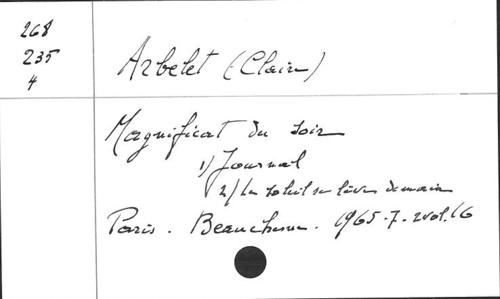 268
235
4
Arbelet (Claire)
Magnificat du soir
1) Journal
2) Le soleil se lèvera demain
Paris. Beauchesne. 1965-7. 2 vol. 16